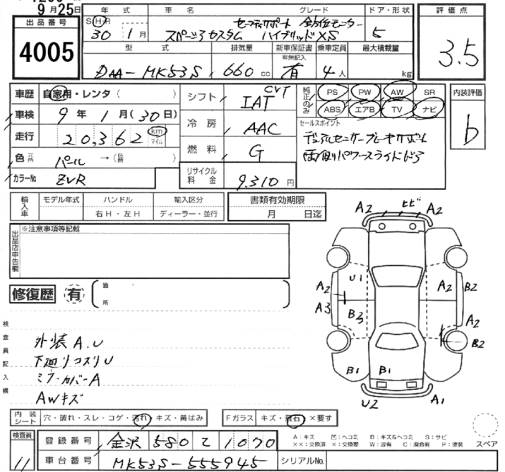 9月25日
出品番号
4005
年式 グレード ドア・形状
S H R 30年 1月 スペーシアカスタム ハイブリッドXS 5
セーフティサポート 全方位モニター
型式 排気量 新車保証書 乗車定員 最大積載量
有無記入
DAA-MK53S 660cc 有 4人 kg
評価点
3.5
車歴 自家用・レンタ ( )
車検 9年 1月(30日)
走行 20,362 km マイル
色 パール →
カラーNo ZVR
シフト CVT IAT
冷房 AAC
燃料 G
リサイクル料金 9,310円
純正のみ PS PW AW SR
ABS エアB TV ナビ
セールスポイント
デュアルセンサーブレーキサポート
両側パワースライドドア
内装評価
b
輸入車 モデル年式 ハンドル 輸入区分 書類有効期限
右H・左H ディーラー・並行 月 日迄
※注意事項等記載
出品店申告欄
修復歴 有 箇所
検査員記入欄
外装A.U
下廻りコスリU
ミラーカバーA
AWキズ
A2 ヒビ A2
A2 U1 A2 B2
A3 B3 A2
B2
B1 B1
U2 A2
スペア
内装シート 穴・破れ・スレ・コゲ・汚れ・キズ・黄ばみ Fガラス キズ・飛石・×要す
検査員 11
登録番号 金沢 580 て 1070
車台番号 MK53S-555945 シリアルNo.
A:キズ U:ヘコミ B:キズ&ヘコミ S:サビ
××:交換済 ×:交換要 W:波 C:腐食 P:塗装